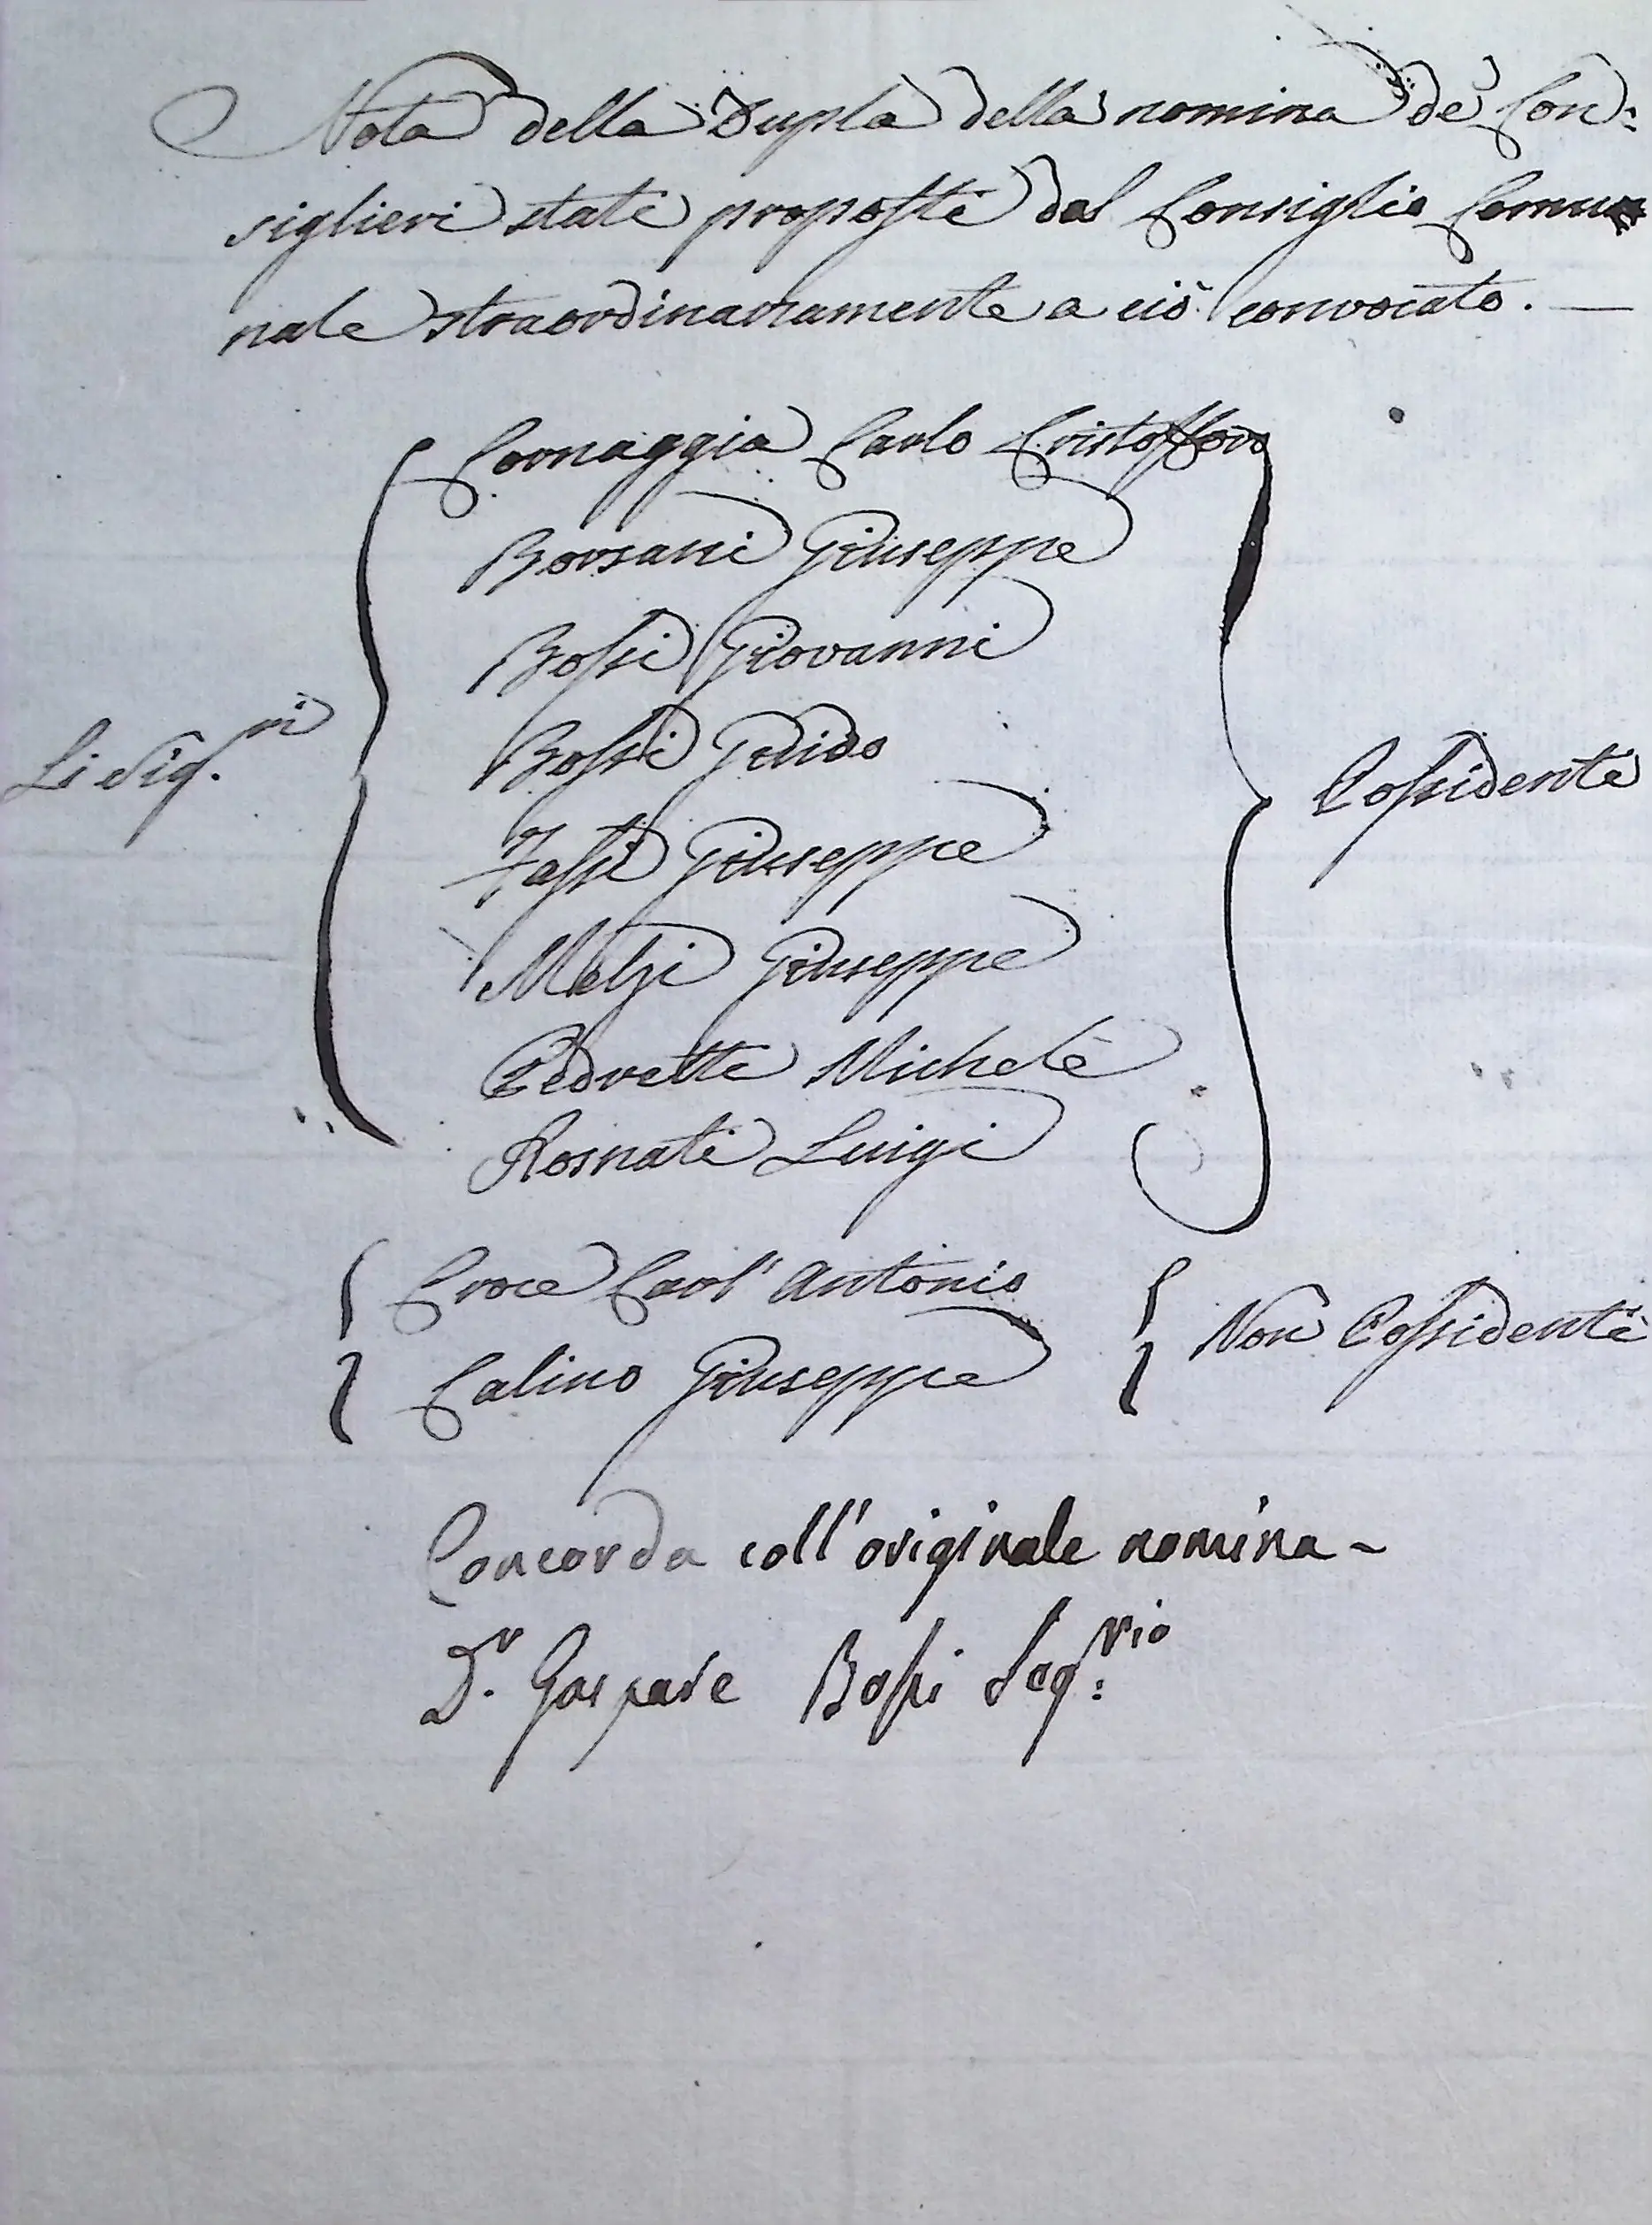 Nota della Dupla della nomina de' Con:
siglieri stati proposti dal Consiglio Comu
nale straordinariamente a ciò convocato. —
Cornaggia Carlo Cristofforo
Borsani Giuseppe
Bossi Giovanni
Bossi Guido
Li Sig.ri
Possidenti
Fassi Giuseppe
Melzi Giuseppe
Pedretti Michele
Rosnati Luigi
Croce Carl' Antonio
Non Possidenti
Calino Giuseppe
Concorda coll'originale nomina -
Dr. Gaspare Bossi Seg:rio